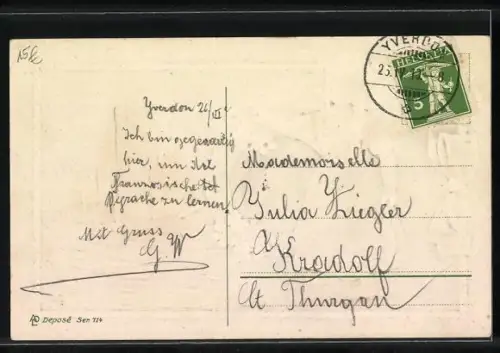 15.-
YVERDON
HELVETIA
5
Yverdon 26/III
Ich bin gegenwärtig
hier, um die
Französische
Sprache zu lernen!
Mit Gruss
G. W
Mademoiselle
Julia Ziegler
Kradolf
Ct Thurgau
Deposé Ser. 114